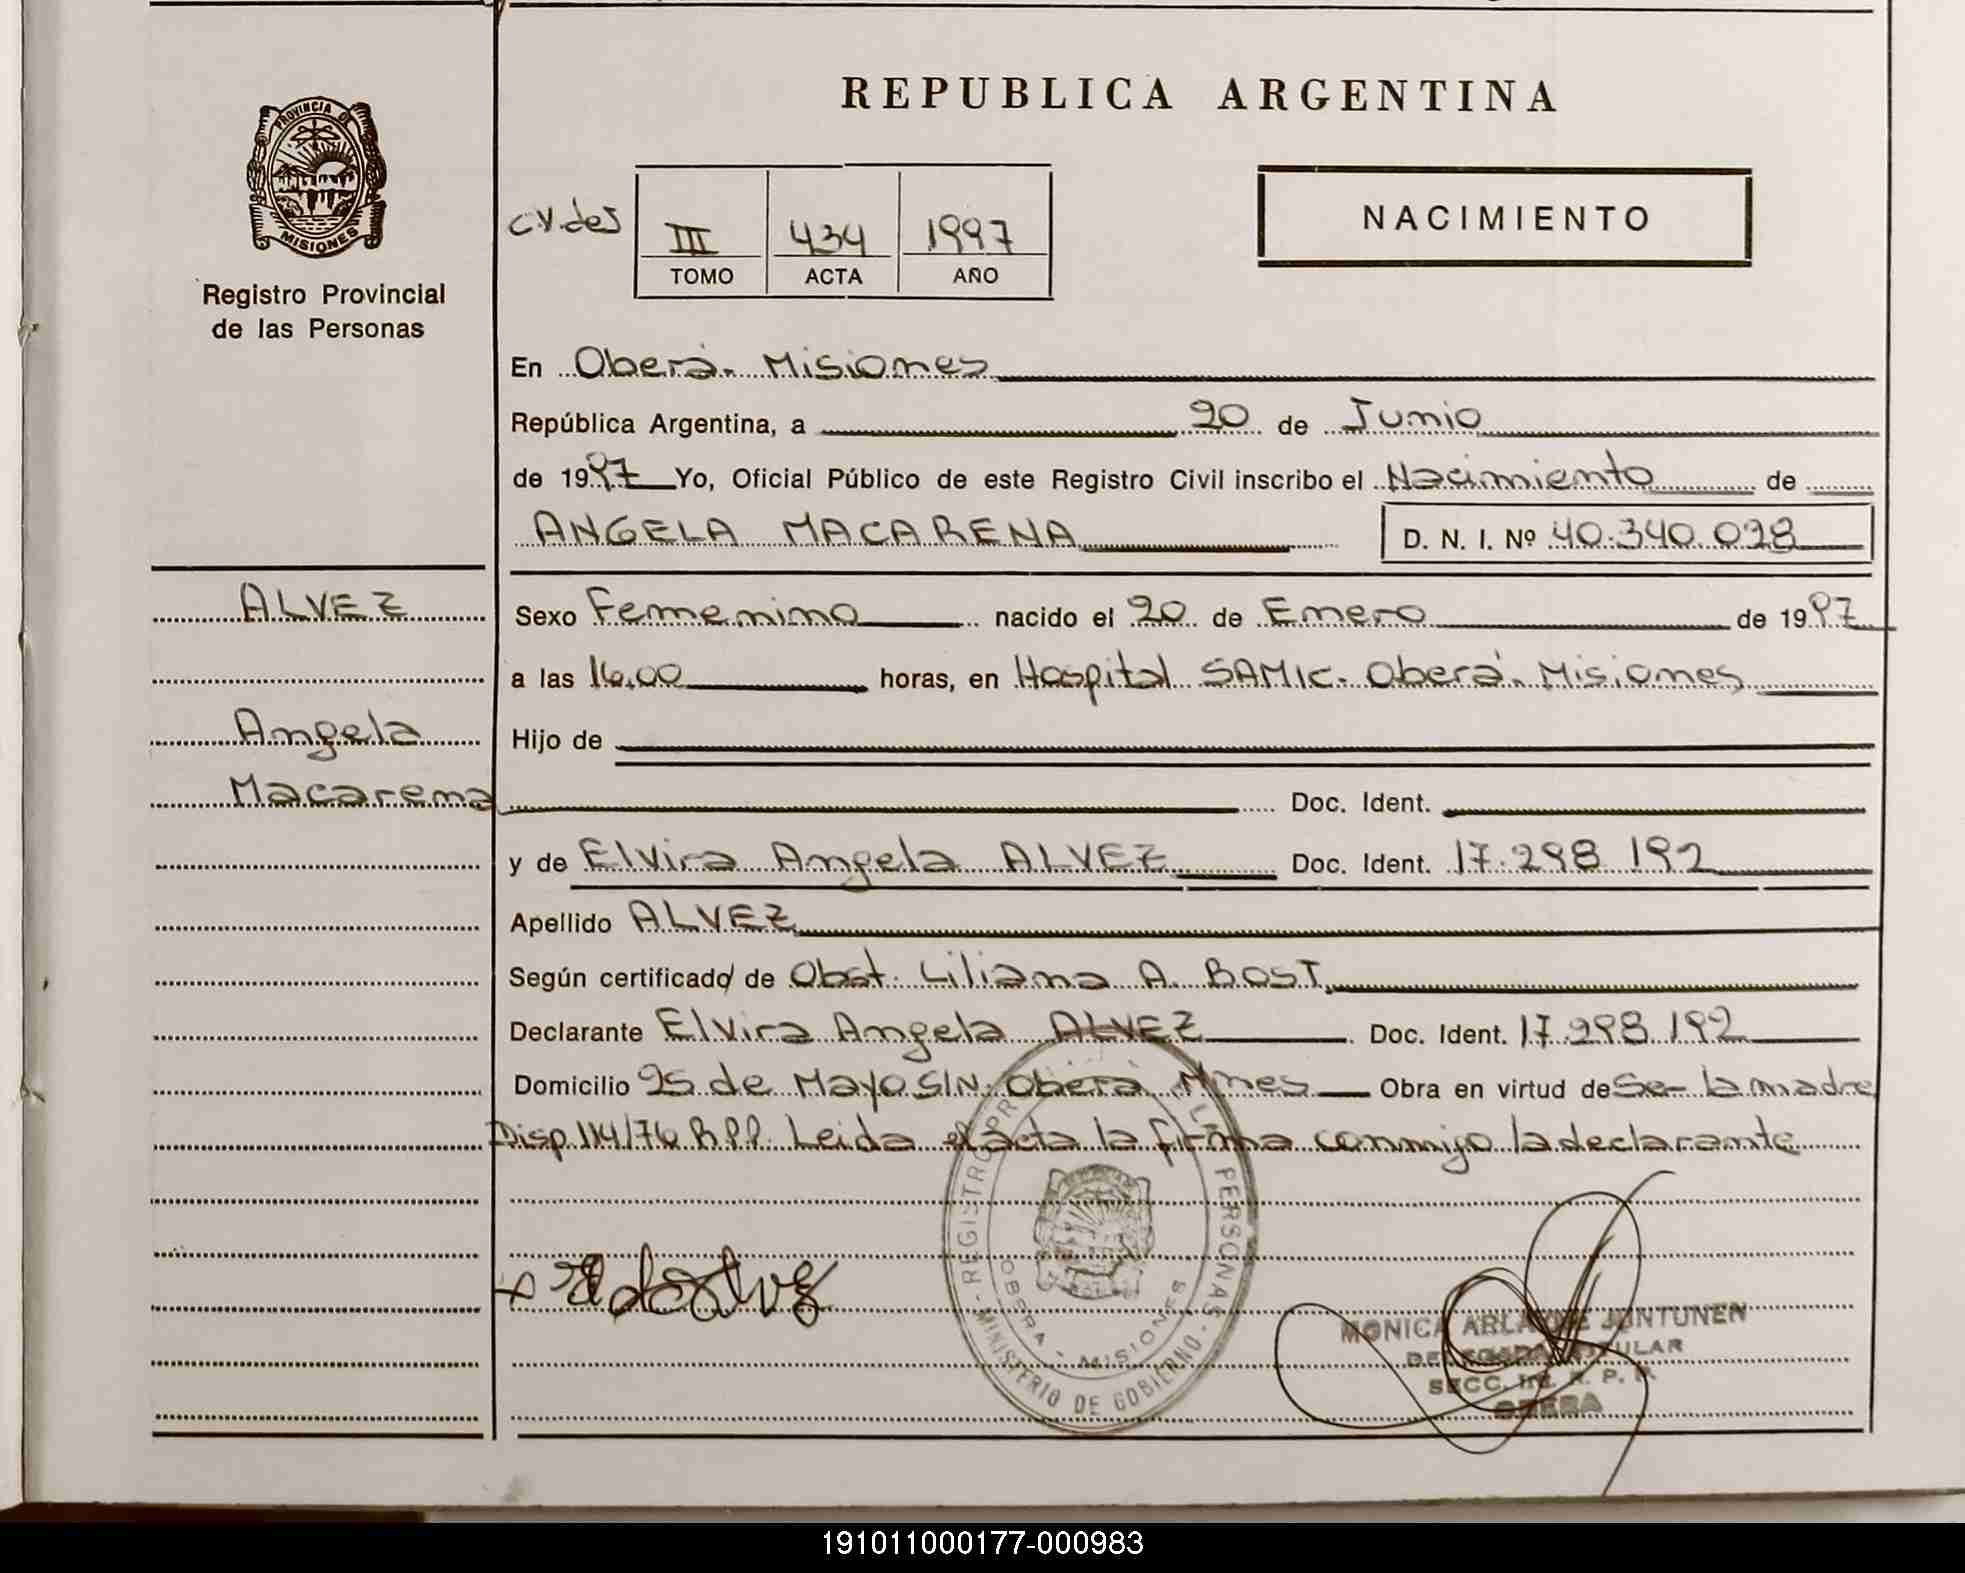 REPUBLICA ARGENTINA
PROVINCIA DE MISIONES
Registro Provincial
de las Personas
C.V.des
III 434 1997
TOMO ACTA AÑO
NACIMIENTO
En Oberá. Misiones
República Argentina, a 20 de Junio
de 1997 Yo, Oficial Público de este Registro Civil inscribo el Nacimiento de
ANGELA MACARENA D. N. I. Nº 40.340.028
ALVEZ
Angela
Macarena
Sexo Femenino nacido el 20 de Enero de 1997
a las 16,00 horas, en Hospital SAMIC. Oberá. Misiones
Hijo de
Doc. Ident.
y de Elvira Angela ALVEZ Doc. Ident. 17.298.192
Apellido ALVEZ
Según certificado de Obst. Liliana A. BOST
Declarante Elvira Angela ALVEZ Doc. Ident. 17.298.192
Domicilio 25 de Mayo S/N. Oberá Mnes Obra en virtud de Se- la madre
Disp. 114/76 R.P.P. Leida el acta la firma conmigo la declarante
REGISTRO PERSONAS - MINISTERIO DE GOBIERNO
OBERA - MISIONES
MONICA JUNTUNEN
TITULAR
SECC. R. P. P.
OBERA
191011000177-000983